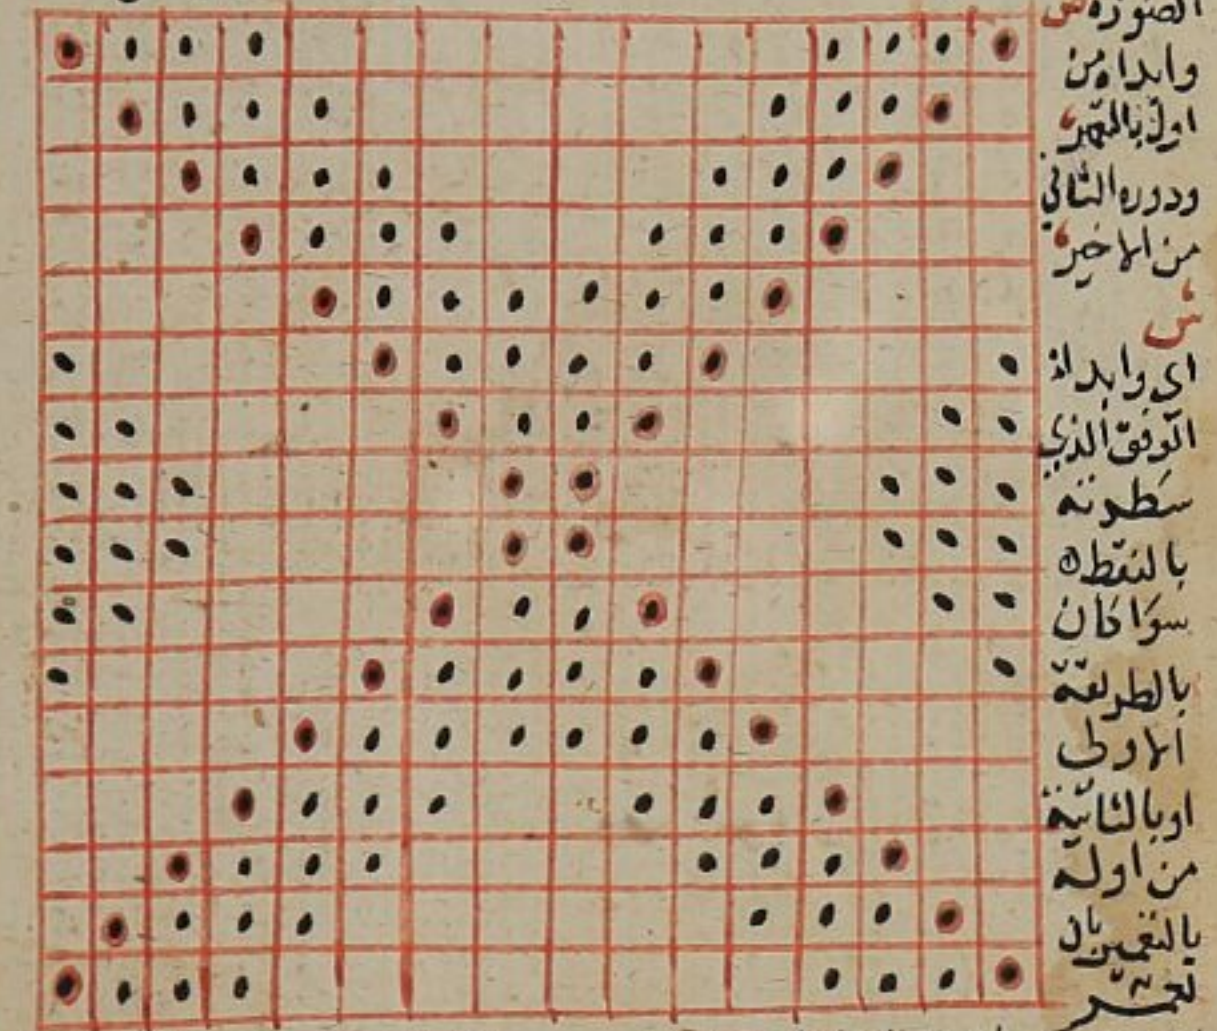 الصورة ص
وابداه من
اول بالتعمير
ودوره الثاني
من الاخير
ش
اي وابدا
الوفق الذي
سطرته
بالنقط
سوا كان
بالطريقة
الاولى
او بالثانية
من اوله
بالتعمير بان
تعمر